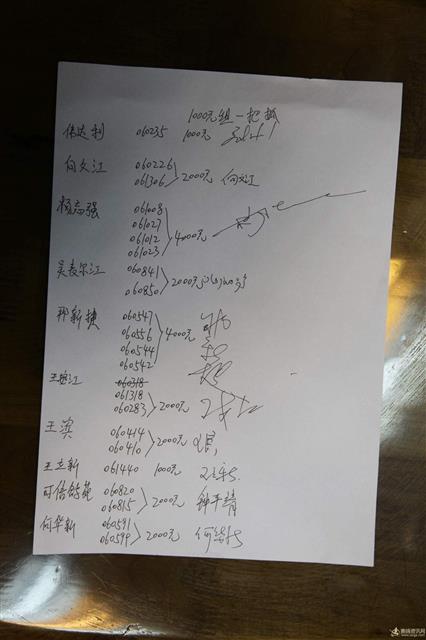 1000元组一把抓
伟达利 060235 1000元
向文江 060226
061306 2000元 向文江
杨志强 061008
061027
061012 4000元
061023
吴表尔江 060841
060850 2000元
邢新捷 060547
060556 4000元
060544
060542
王 江 060318
061318
060283 2000元
王滨 060414
060410 2000元
王立新 061440 1000元
可倍舒苑 060820
060815 2000元 钟平靖
何华新 060591
060599 2000元